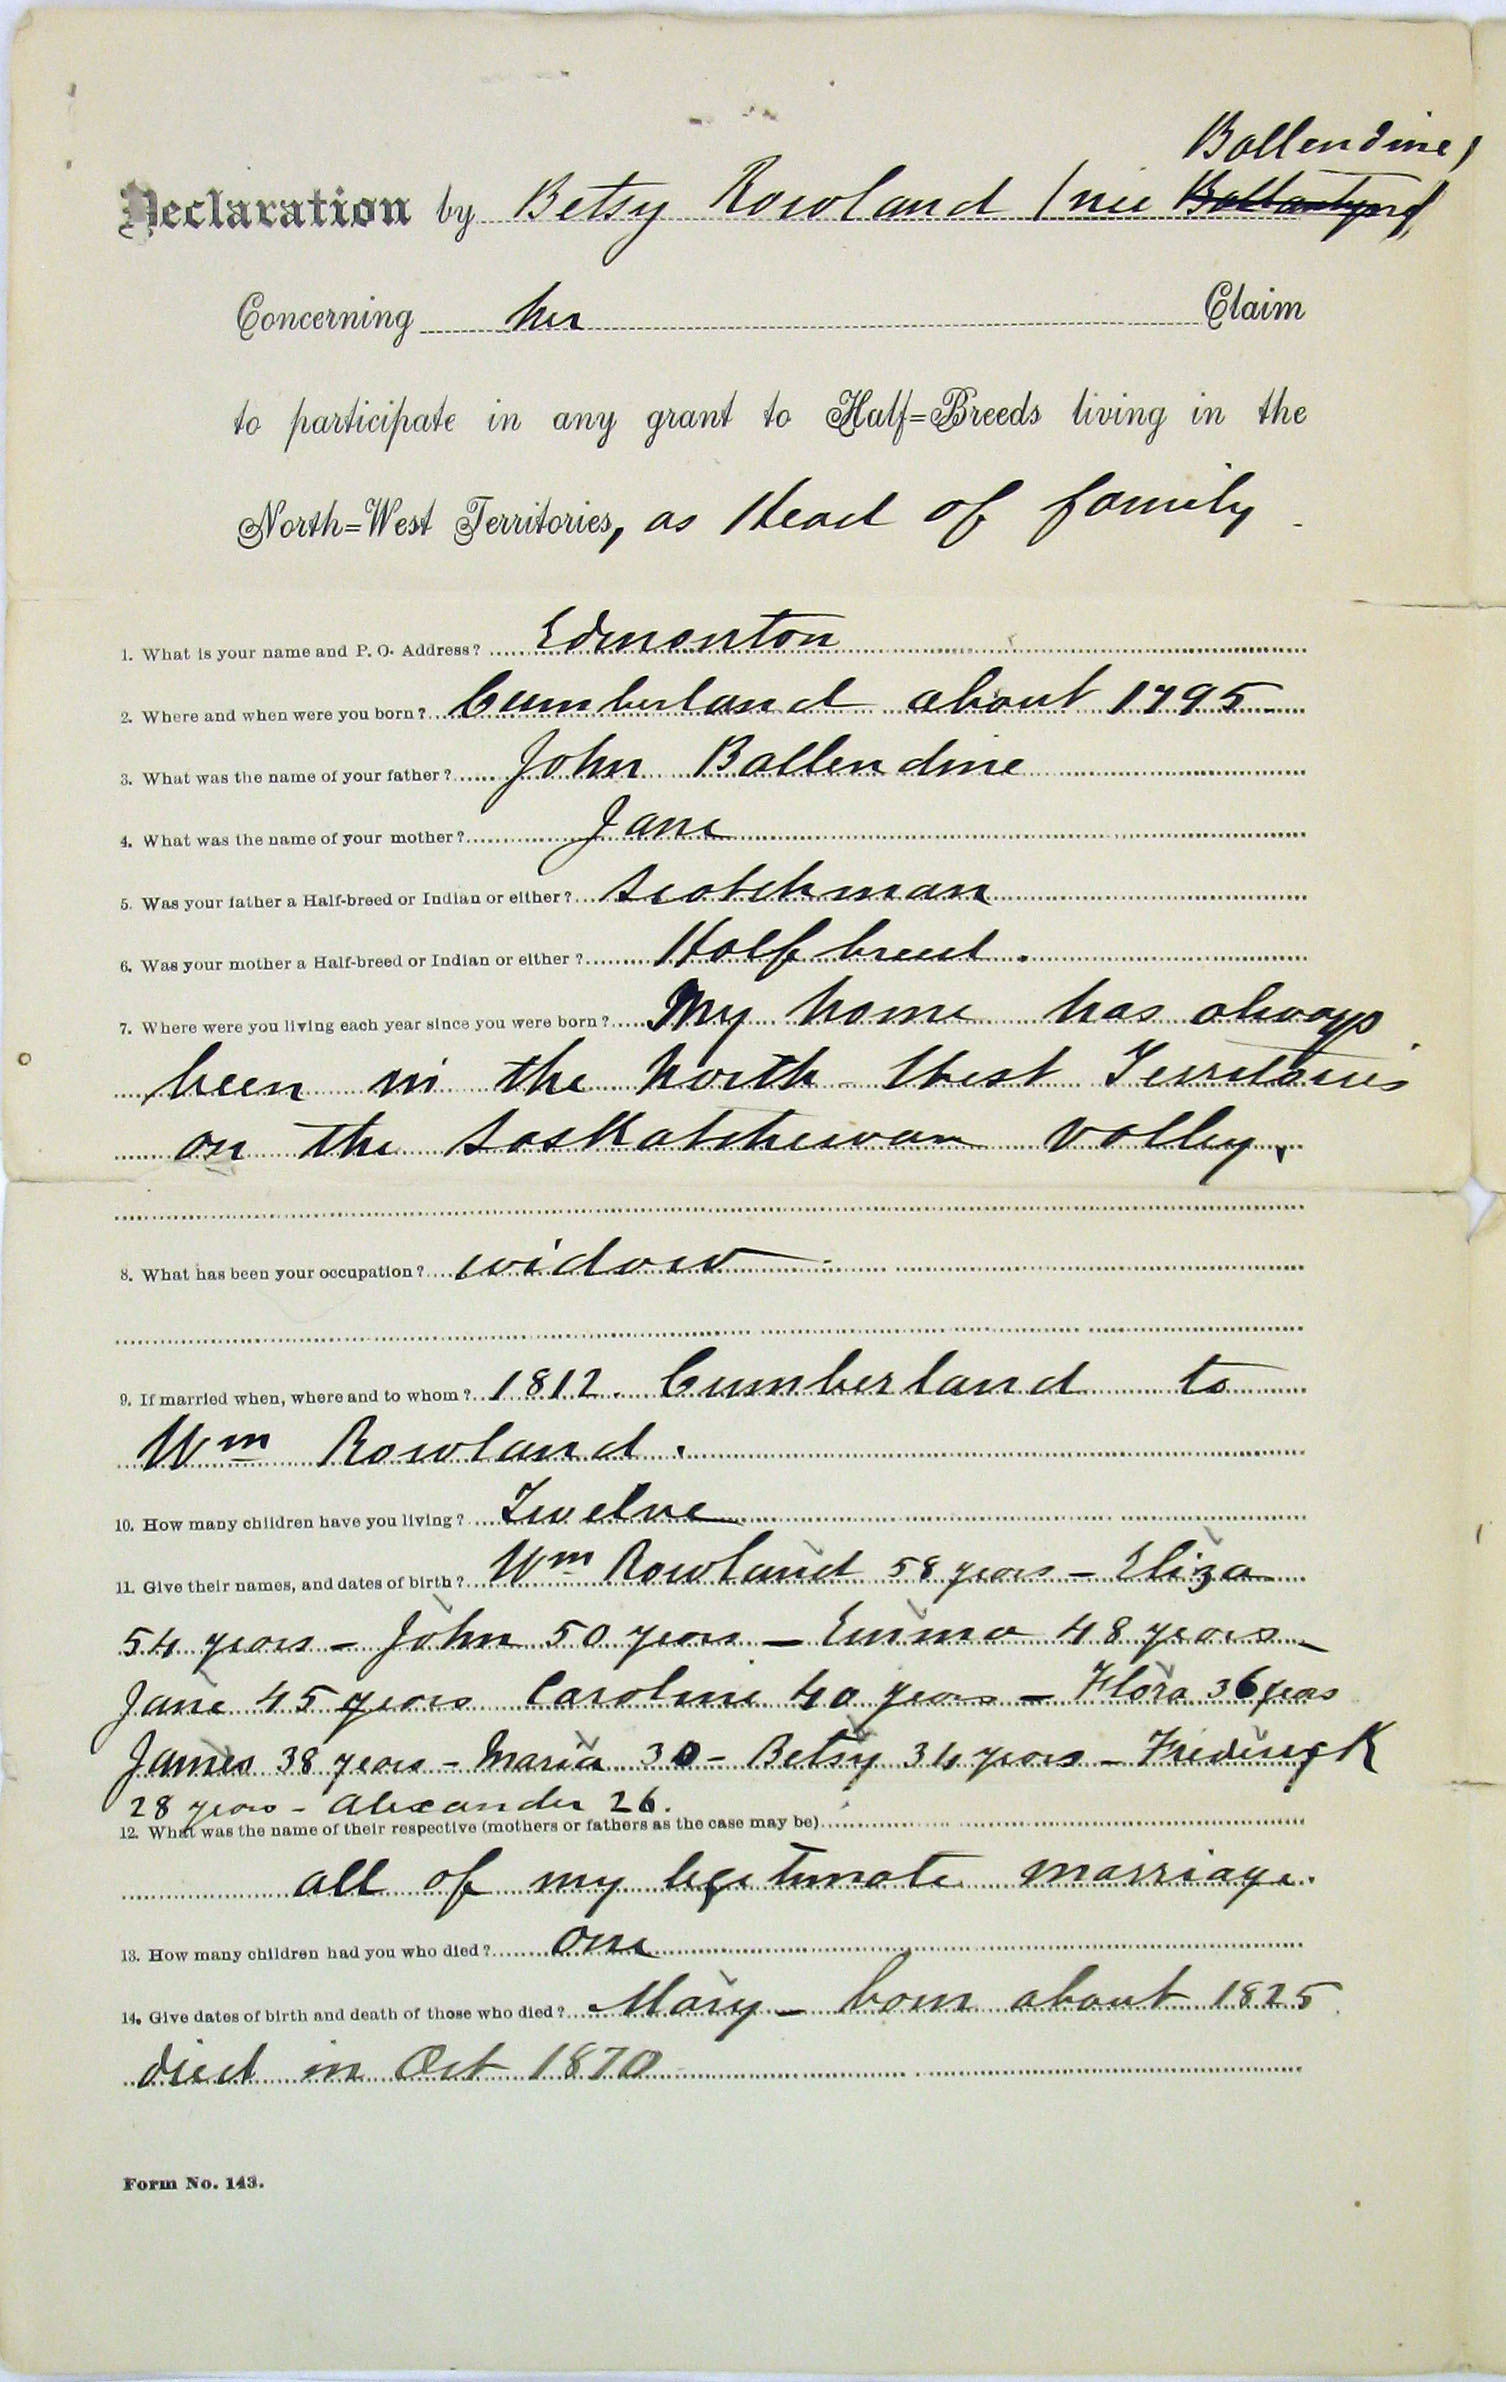 Ballendine)
Declaration by Betsy Rowland (nee Ballantyne)
Concerning her Claim
to participate in any grant to Half=Breeds living in the
North=West Territories, as Head of family -
1. What is your name and P. O. Address? Edmonton
2. Where and when were you born? Cumberland about 1795
3. What was the name of your father? John Ballendine
4. What was the name of your mother? Jane
5. Was your father a Half-breed or Indian or either? Scotchman
6. Was your mother a Half-breed or Indian or either? Half breed.
7. Where were you living each year since you were born? My home has always
been in the North West Territories
on the Saskatchewan valley.
8. What has been your occupation? widow
9. If married when, where and to whom? 1812. Cumberland to
Wm Rowland.
10. How many children have you living? Twelve
11. Give their names, and dates of birth? Wm Rowland 58 years - Eliza
54 years - John 50 years - Emma 48 years -
Jane 45 years Caroline 40 years - Flora 36 years
James 38 years - Maria 30 - Betsy 34 years - Frederick
28 years - Alexander 26.
12. What was the name of their respective (mothers or fathers as the case may be)
all of my legitimate marriage.
13. How many children had you who died? One
14. Give dates of birth and death of those who died? Mary - born about 1825
died in Oct 1870
Form No. 143.